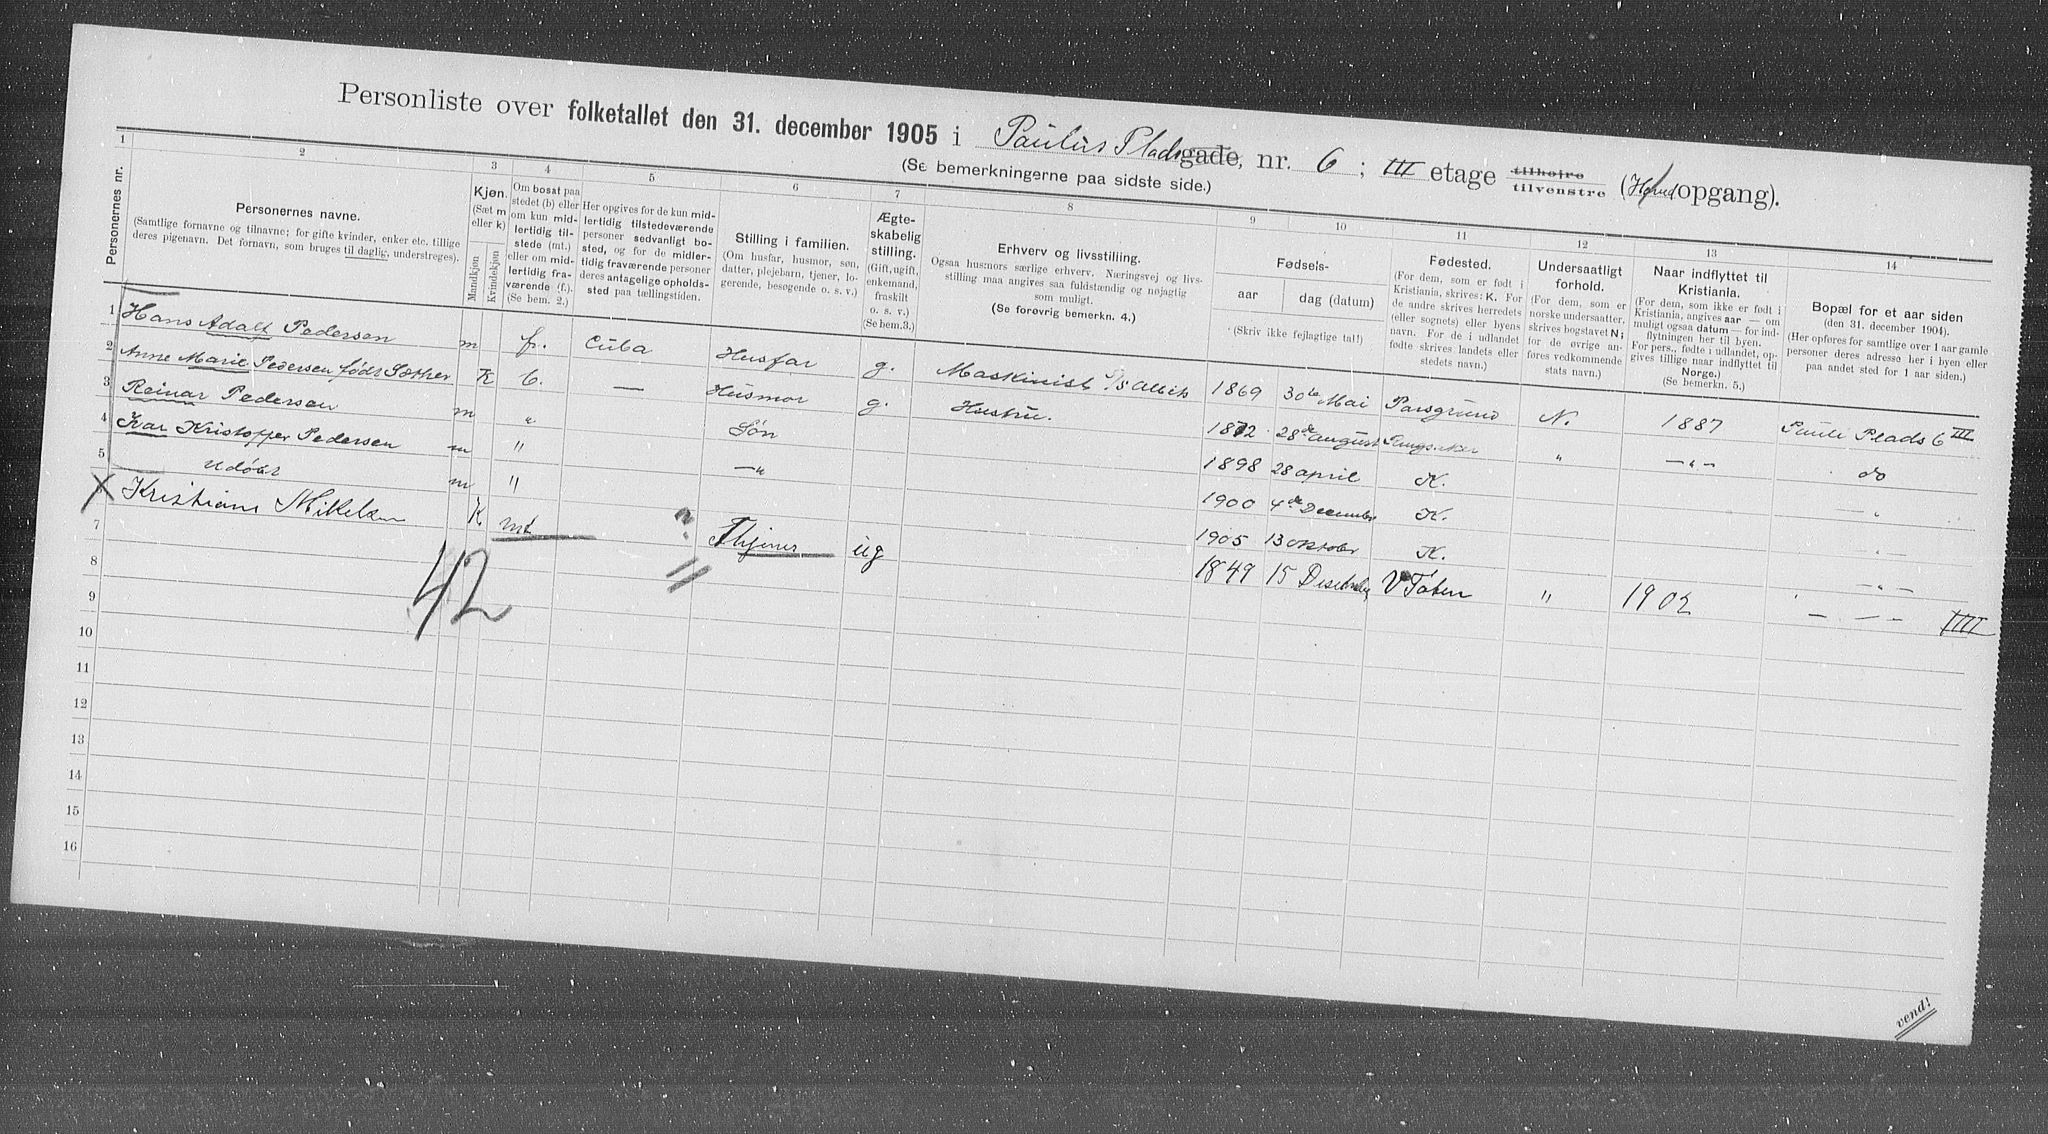 Personliste over folketallet den 31. december 1905 i Paulus Plads gade, nr. 6 ; III etage tilhøjre tilvenstre (Hoved opgang).
(Se bemerkningerne paa sidste side.)
1 2 3 4 5 6 7 8 9 10 11 12 13 14
Personernes nr.
Personernes navne.
(Samtlige fornavne og tilnavne; for gifte kvinder, enker etc. tillige
deres pigenavn. Det fornavn, som bruges til daglig, understreges).
Kjøn.
(Sæt m
eller k)
Mandkjøn
Kvindekjøn
Om bosat paa
stedet (b) eller
om kun mid-
lertidig til-
stede (mt.)
eller om mid-
lertidig fra-
værende (f.).
(Se bem. 2.)
Her opgives for de kun mid-
lertidig tilstedeværende
personer sedvanlig bo-
sted, og for de midler-
tidig fraværende personer
deres antagelige opholds-
sted paa tællingstiden.
Stilling i familien.
(Om husfar, husmor, søn,
datter, plejebarn, tjener, lo-
gerende, besøgende o. s. v.)
Ægte-
skabelig
stilling.
(Gift, ugift,
enkemand,
fraskilt
o. s. v.)
(Se bem.3.)
Erhverv og livsstilling.
Ogsaa husmors særlige erhverv. Næringsvej og livs-
stilling maa angives saa fuldstændig og nøjagtig
som muligt.
(Se forøvrig bemerkn. 4.)
Fødsels-
aar
dag (datum)
(Skriv ikke fejlagtige tal!)
Fødested.
(For dem, som er født i
Kristiania, skrives: K. For
de andre skrives herredets
(eller sognets) eller byens
navn. For de i udlandet
fødte skrives landets eller
stedets navn.)
Undersaatligt
forhold.
(For dem, som er
norske undersaatter,
skrives bogstavet N;
for de øvrige an-
føres vedkommende
stats navn.)
Naar indflyttet til
Kristiania.
(For dem, som ikke er født i
Kristiania, angives aar — om
muligt ogsaa datum — for ind-
flytningen her til byen.
For pers., fødte i udlandet, op-
gives tillige naar indflyttet til
Norge.)
(Se bemerkn. 5.)
Bopæl for et aar siden
(den 31. december 1904).
(Her opføres for samtlige over 1 aar gamle
personer deres adresse her i byen eller
paa andet sted for 1 aar siden.)
1 Hans Adolf Pedersen m fr. Cuba Husfar g. Maskinist 1869 30te Mai Porsgrund N. 1887 Pauli Plads 6 III
2 Anne Marie Pedersen født Sæther K b. — Husmor g. Hustru. 1872 28de august " — " — do
3 Reinar Pedersen m " Søn 1898 28 april K. — "
4 Ivar Kristoffer Pedersen m " — " 1900 4de December K. " —
5 Udøbt m " 1905 13 oktober K. — " —
6 Kristiane Mikelsen K mt ? Thjener ug 1849 15 Desember V Toten " 1902 — — — IIII
7
8
42
9
10
11
12
13
14
15
16
vend!